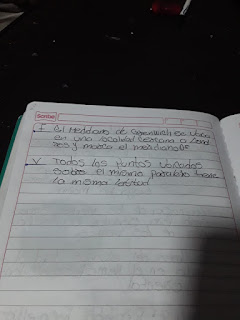 Scribe
F El Meridano de Greenwich es Ubica
en una localidad cercana a Lond
res y marca el meridiano 0°
V Todos los puntos Ubicados
sobre el mismo paralelo tiene
la misma latitud